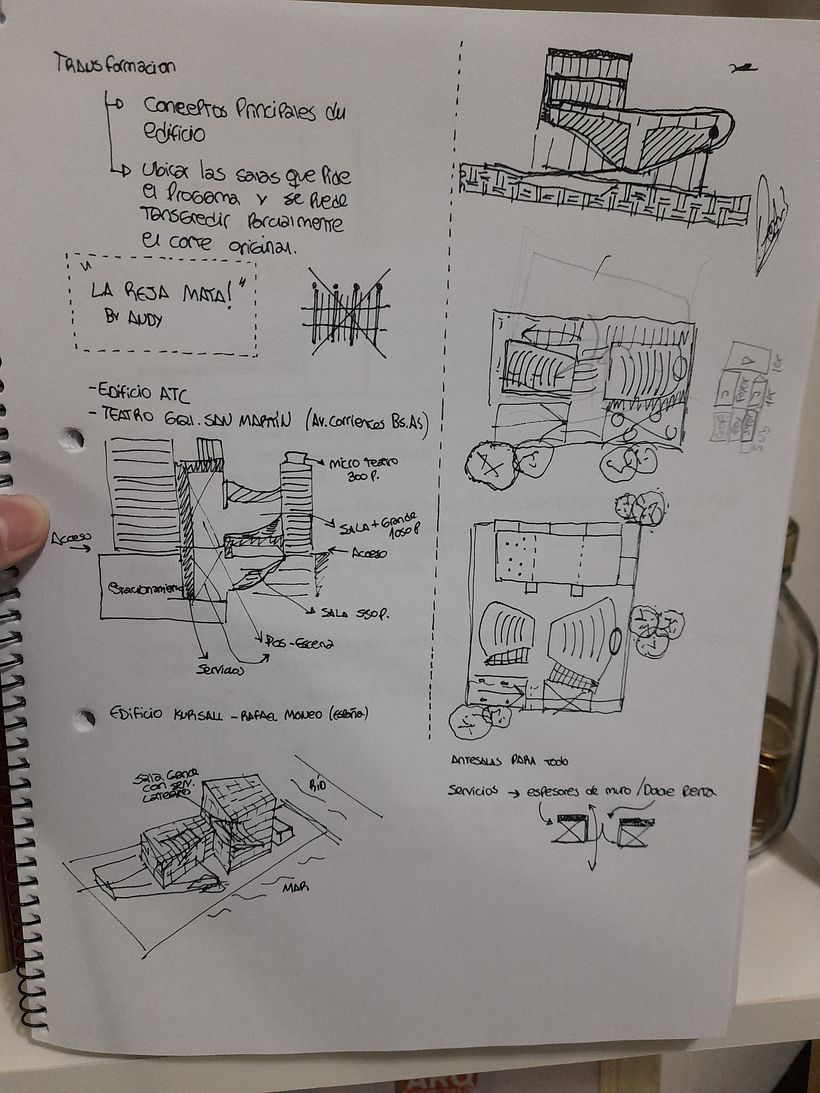 Transformacion
Conceptos Principales du
edificio
Ubicar las salas que Pide
el Programa y se Puede
Transgredir Parcialmente
el corte original.
"LA REJA MATA!"
By ANDY
- Edificio ATC
- TEATRO GRL. SAN MARTÍN (Av. Corrientes Bs.As)
Micro Teatro
300 P.
SALA + Grande
1050 P
Acceso
Acceso
Estacionamiento
SALA 550 P.
Pos-Escena
Servicios
EDIFICIO KURSALL - RAFAEL MONEO (España)
Sala Grande
con serv.
Laterales
RÍO
MAR
ANTESALAS PARA TODO
Servicios → espesores de muro / Doble Puerta
SUB
ARQ